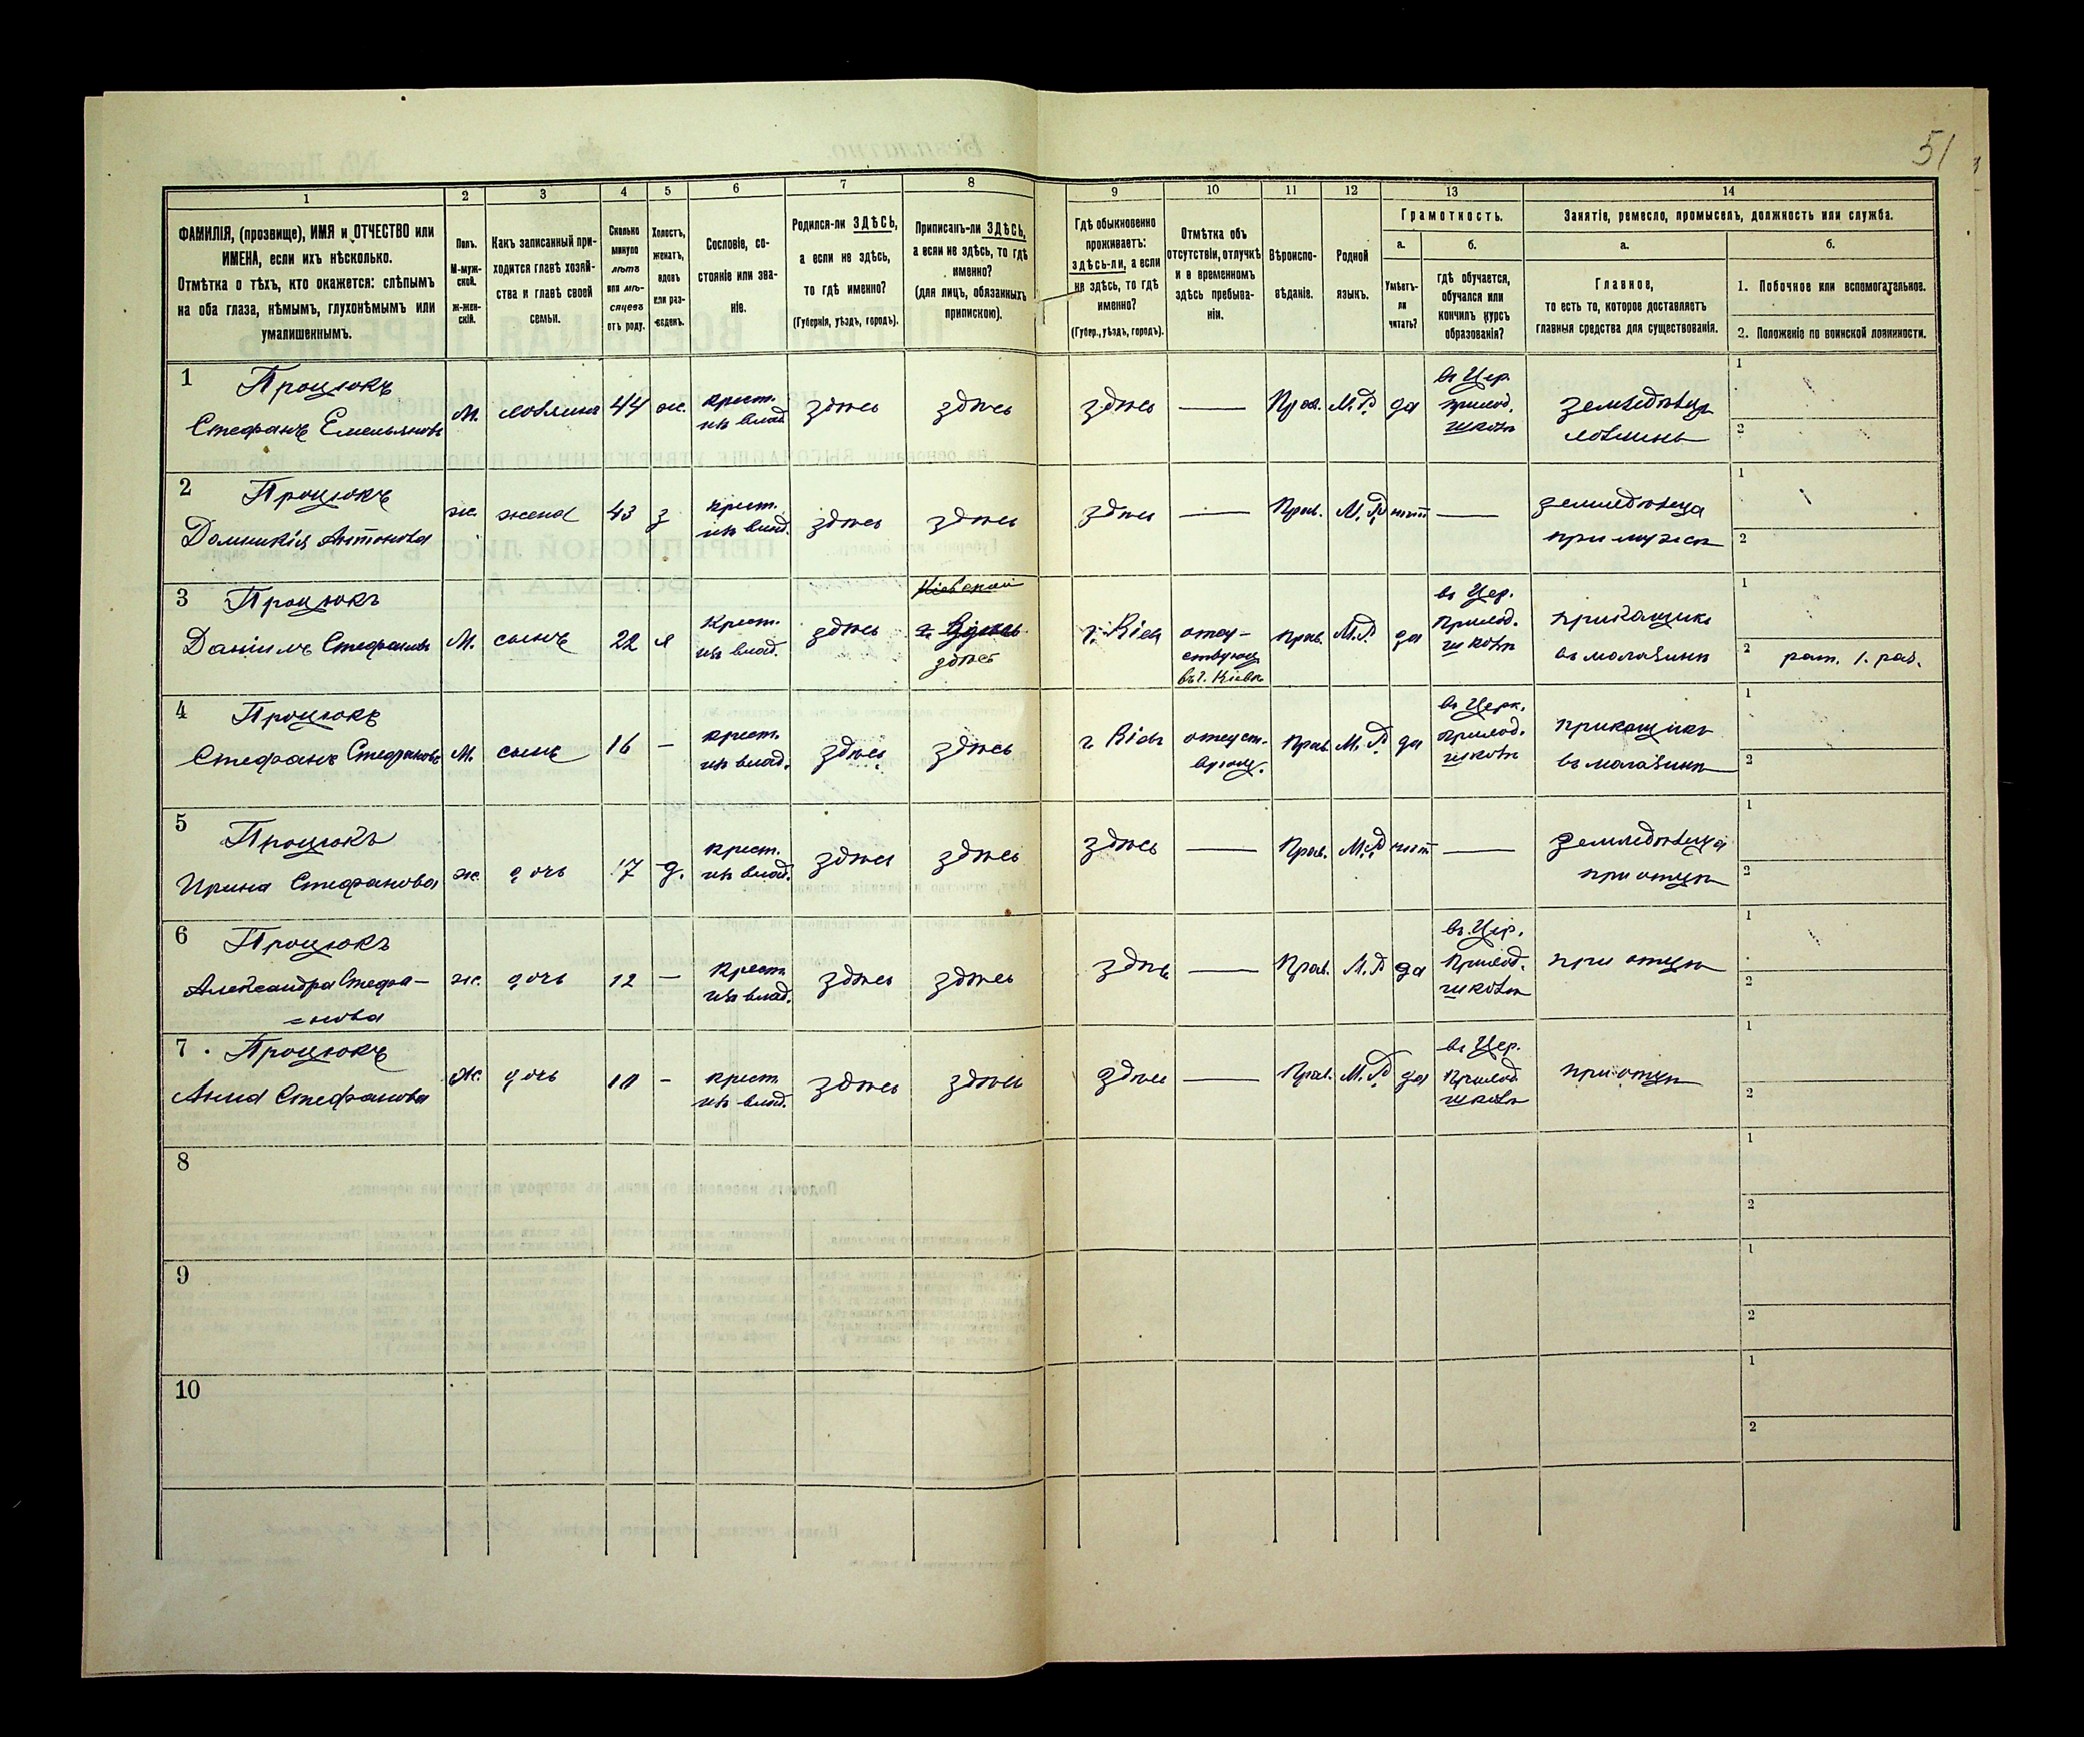 51
1
2
3
4
5
6
7
8
9
10
11
12
13
14
ФАМИЛІЯ, (прозвище), ИМЯ и ОТЧЕСТВО или
ИМЕНА, если ихъ нѣсколько.
Отмѣтка о тѣхъ, кто окажется: слѣпымъ
на оба глаза, нѣмымъ, глухонѣмымъ или
умалишеннымъ.
Полъ.
М-муж-
ской.
ж-жен-
скій.
Какъ записанный при-
ходится главѣ хозяй-
ства и главѣ своей
семьи.
Сколько
минуло
лѣтъ
или мѣ-
сяцевъ
отъ роду.
Холостъ,
женатъ,
вдовъ
или раз-
веденъ.
Сословіе, со-
стояніе или зва-
ніе.
Родился-ли ЗДѢСЬ,
а если не здѣсь,
то гдѣ именно?
(Губернія, уѣздъ, городъ).
Приписанъ-ли ЗДѢСЬ,
а если не здѣсь, то гдѣ
именно?
(для лицъ, обязанныхъ
припискою).
Гдѣ обыкновенно
проживаетъ:
здѣсь-ли, а если
не здѣсь, то гдѣ
именно?
(Губер., уѣздъ, городъ).
Отмѣтка объ
отсутствіи, отлучкѣ
и о временномъ
здѣсь пребыва-
ніи.
Вѣроиспо-
вѣданіе.
Родной
языкъ.
Грамотность.
а.
б.
Умѣетъ-
ли
читать?
гдѣ обучается,
обучался или
кончилъ курсъ
образованія?
Занятіе, ремесло, промыселъ, должность или служба.
а.
б.
Главное,
то есть то, которое доставляетъ
главныя средства для существованія.
1. Побочное или вспомогательное.
2. Положеніе по воинской повинности.
1 Процюкъ
Стефанъ Емельяновъ
м. хозяинъ 44 ж. крест.
изъ влад. здѣсь здѣсь здѣсь — Прав. М.Р. да
въ Цер.
приход.
школѣ
земледѣлец
хозяинъ
1
2
2 Процюкъ
Домникія Антонова
ж. жена 43 з крест.
изъ влад. здѣсь здѣсь здѣсь — Прав. М.Р. нѣт —
земледѣлица
при мужѣ
1
2
3 Процюкъ
Даніилъ Стефановъ
М. сынъ 22 крест.
изъ влад. здѣсь
Кіевской
здѣсь
г. Кіев
отсу-
ствующ
въ г. Кіевѣ
прав. М.Р. да
въ Цер.
Приход.
школѣ
прикащикъ
въ магазинѣ
1
2 рат. 1. раз.
4 Процюкъ
Стефанъ Стефановъ
М. сынъ 16 — крест.
изъ влад. здѣсь здѣсь г. Кіев
отсутст-
вующ.
Прав М.Р. да
въ Церк.
приход.
школѣ
прикащикъ
въ магазинѣ
1
2
5 Процюкъ
Ирина Стефанова
ж. дочь 17 д. крест.
изъ влад. здѣсь здѣсь здѣсь — Прав. М.Р. нѣт —
земледѣлица
при отцѣ
1
2
6 Процюкъ
Александра Стефа-
=нова
ж. дочь 12 — Крест
изъ влад. здѣсь здѣсь здѣсь — Прав. М.Р. да
въ Цер.
Приход.
школѣ
при отцѣ
1
2
7 Процюкъ
Анна Стефанова
ж. дочь 10 — крест
изъ влад. здѣсь здѣсь здѣсь — Прав. М.Р. да
въ Цер.
Приход
школѣ
при отцѣ
1
2
8
1
2
9
1
2
10
1
2